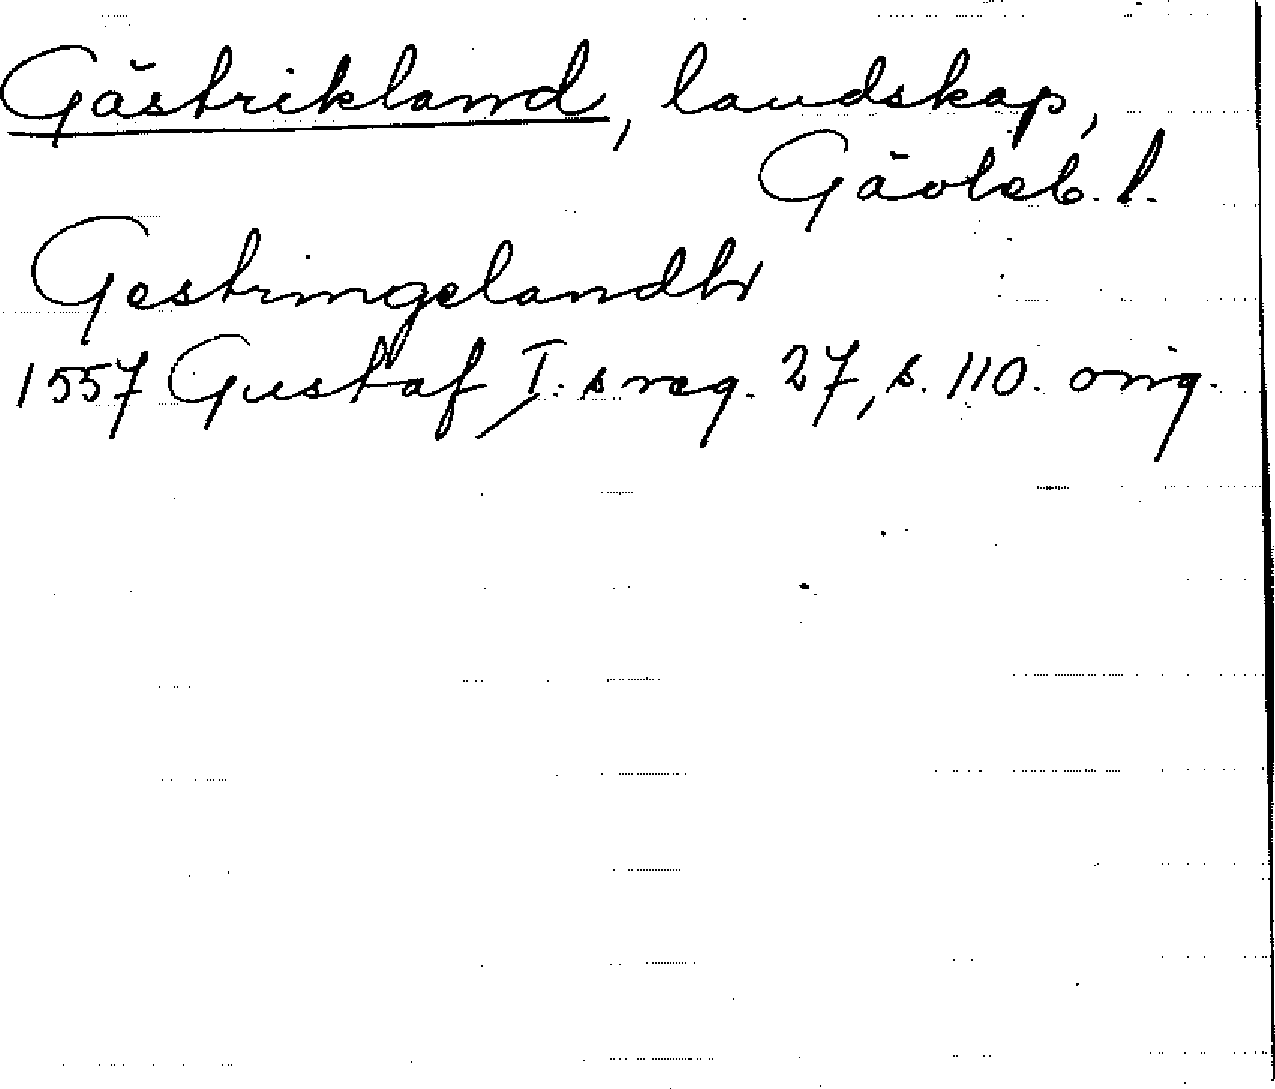 Gästrikland, landskap,
Gävleb. l.
Gestringelandh
1557 Gustaf I:s reg. 27, s. 110. orig.